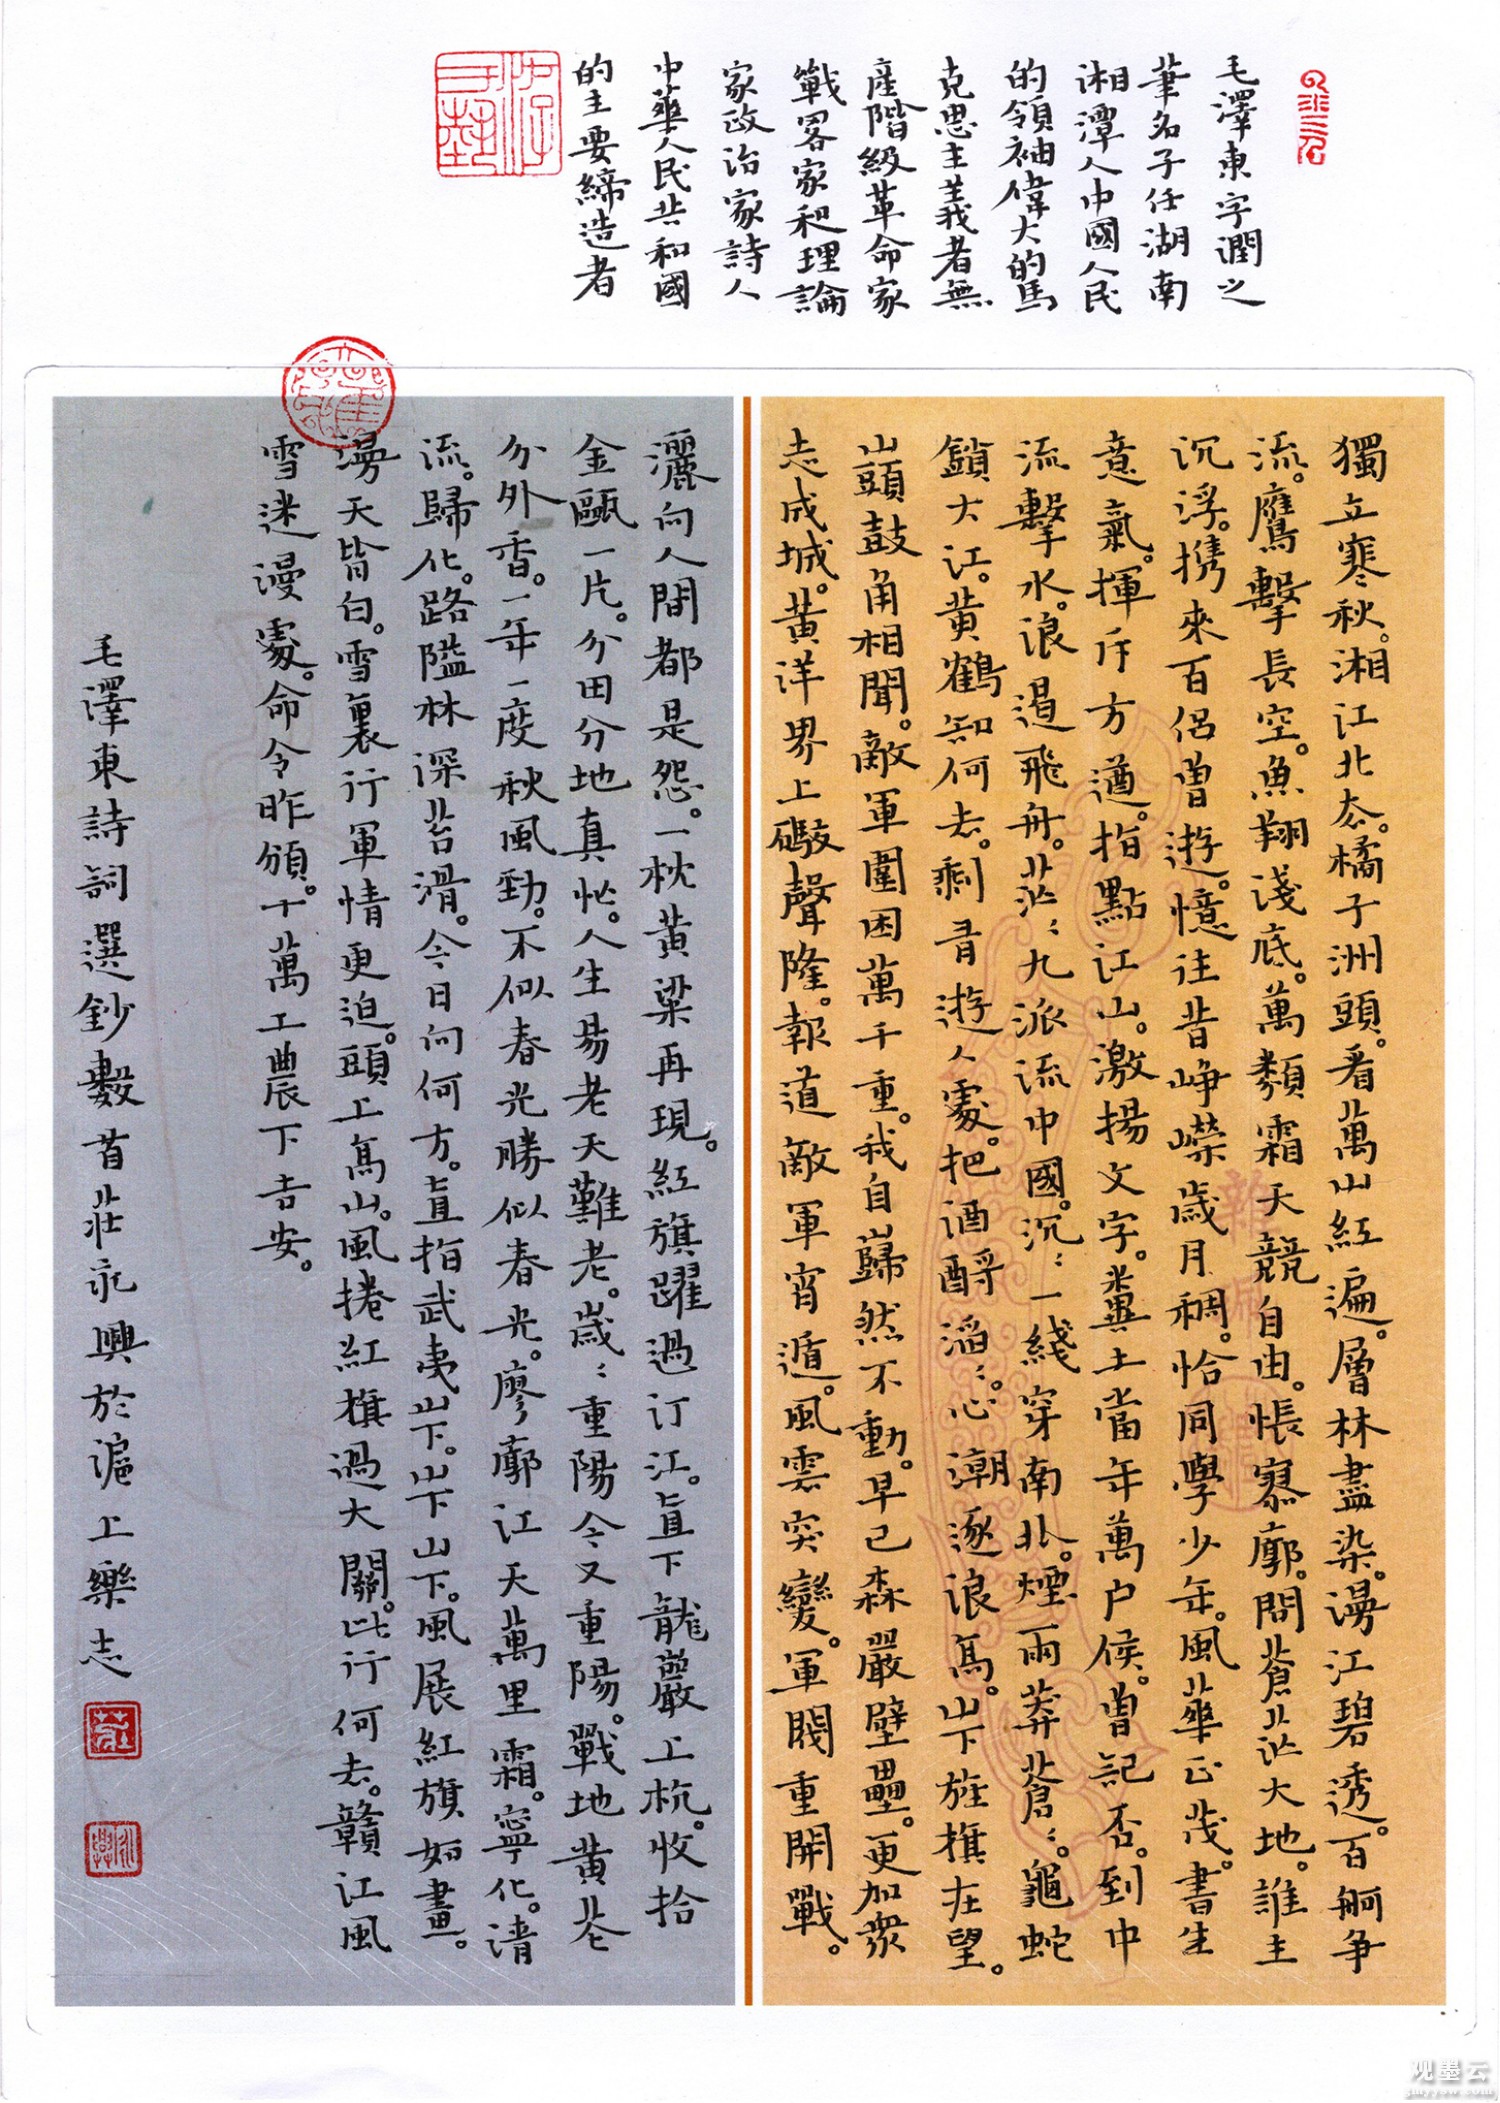 毛澤東字潤之
筆名子任湖南
湘潭人中國人民
的領袖偉大的馬
克思主義者無
産階級革命家
戰畧家和理論
家政治家詩人
中華人民共和國
的主要締造者
獨立寒秋。湘江北去。橘子洲頭。看萬山紅遍。層林盡染。漫江碧透。百舸争
流。鷹擊長空。魚翔淺底。萬類霜天競自由。悵寥廓。問蒼茫大地。誰主
沉浮。携來百侣曾遊。憶往昔峥嶸歲月稠。恰同學少年。風華正茂。書生
意氣。揮斥方遒。指點江山。激揚文字。糞土當年萬户侯。曾記否。到中
流擊水。浪遏飛舟。茫〻九派流中國。沉〻一綫穿南北。煙雨莽蒼〻。龜蛇
鎖大江。黄鶴知何去。剩有遊人處。把酒酹滔〻。心潮逐浪高。山下旌旗在望。
山頭鼓角相聞。敵軍圍困萬千重。我自巋然不動。早已森嚴壁壘。更加衆
志成城。黄洋界上礮聲隆。報道敵軍宵遁。風雲突變。軍閥重開戰。
灑向人間都是怨。一枕黄粱再現。紅旗躍過汀江。直下龍巖上杭。收拾
金甌一片。分田分地真忙。人生易老天難老。歲〻重陽今又重陽。戰地黄花
分外香。一年一度秋風勁。不似春光勝似春光。廖廓江天萬里霜。寧化。清
流。歸化。路隘林深苔滑。今日向何方。直指武夷山下。山下山下。風展紅旗如畫。
漫天皆白。雪裏行軍情更迫。頭上高山。風捲紅旗過大關。此行何去。贛江風
雪迷漫處。命令昨頒。十萬工農下吉安。
毛澤東詩詞選鈔數首莊永興於滬上樂志
观墨云